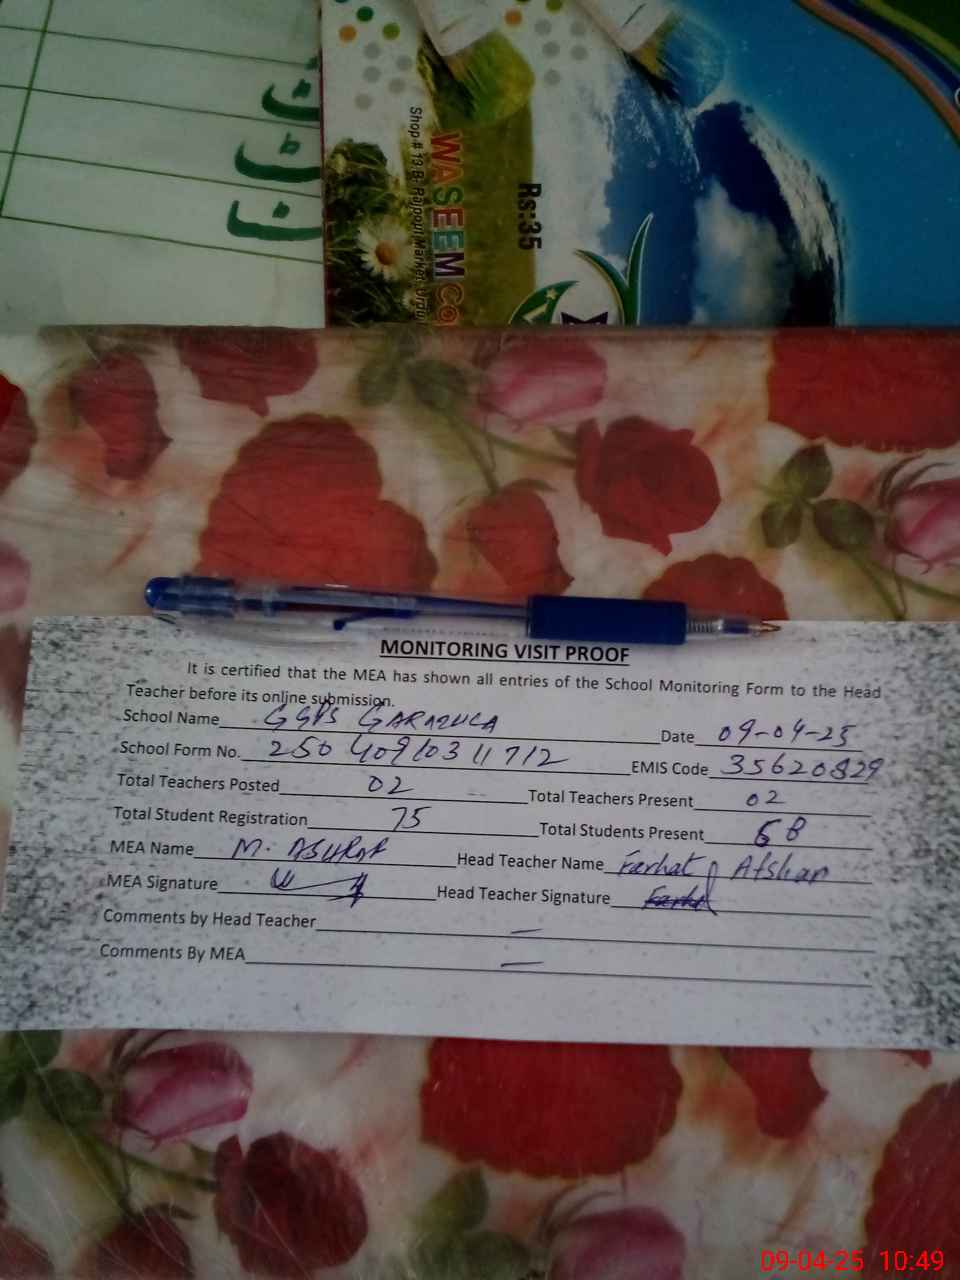 Rs:35
WASEEM CO
Shop # 13 B- Rajpout Market Urdu
MONITORING VISIT PROOF
It is certified that the MEA has shown all entries of the School Monitoring Form to the Head
Teacher before its online submission.
School Name GGPS Date 09-04-25
School Form No. 25040910311712 EMIS Code 35620829
Total Teachers Posted 02 Total Teachers Present 02
Total Student Registration 75 Total Students Present 68
MEA Name M. ASHRAF Head Teacher Name Farhat Afshan
MEA Signature Head Teacher Signature Farhat
Comments by Head Teacher —
Comments By MEA —
09-04-25 10:49